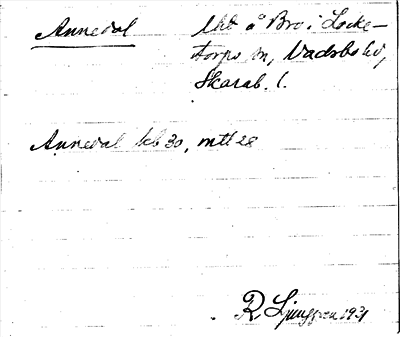 Annedal
Lht å Bro i Locke-
torps sn, Vadsbo hd,
Skarab. l.
Annedal kb 30, mtl 28
R Ljunggren 1931